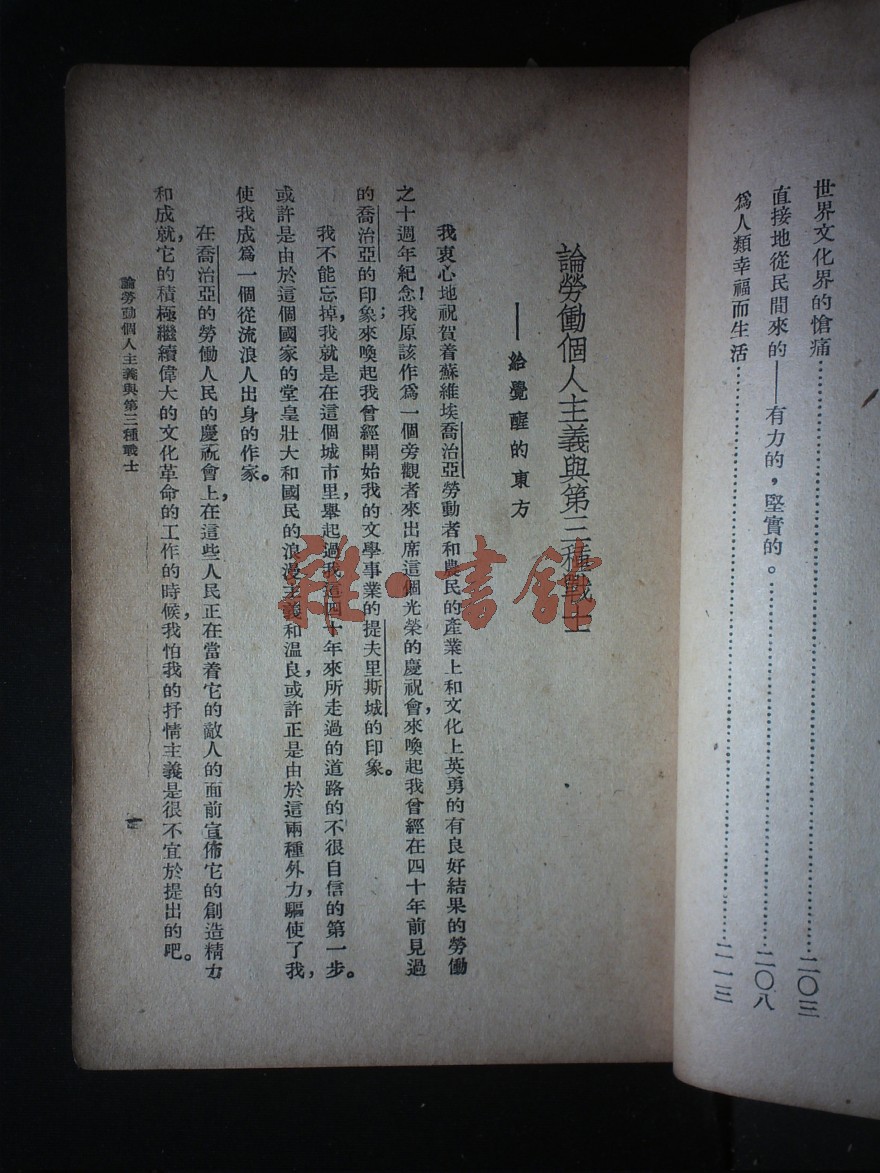 世界文化界的愴痛……………………二〇三
直接地從民間來的——有力的，堅實的。……………………二〇八
爲人類幸福而生活……………………二一三
論勞働個人主義與第三種戰士
——給覺醒的東方
我衷心地祝賀着蘇維埃喬治亞勞動者和農民的產業上和文化上英勇的有良好結果的勞働
之十週年紀念！我原該作爲一個旁觀者來出席這個光榮的慶祝會，來喚起我曾經在四十年前見過
的喬治亞的印象；來喚起我曾經開始我的文學事業的提夫里斯城的印象。
我不能忘掉，我就是在這個城市里，舉起過我這四十年來所走過的道路的不很自信的第一步。
或許是由於這個國家的堂皇壯大和國民的浪漫主義和温良，或許正是由於這兩種外力，驅使了我，
使我成爲一個從流浪人出身的作家。
在喬治亞的勞働人民的慶祝會上，在這些人民正在當着它的敵人的面前宣佈它的創造精力
和成就，它的積極繼續偉大的文化革命的工作的時候，我怕我的抒情主義是很不宜於提出的吧。
論勞動個人主義與第三種戰士
雜·書館